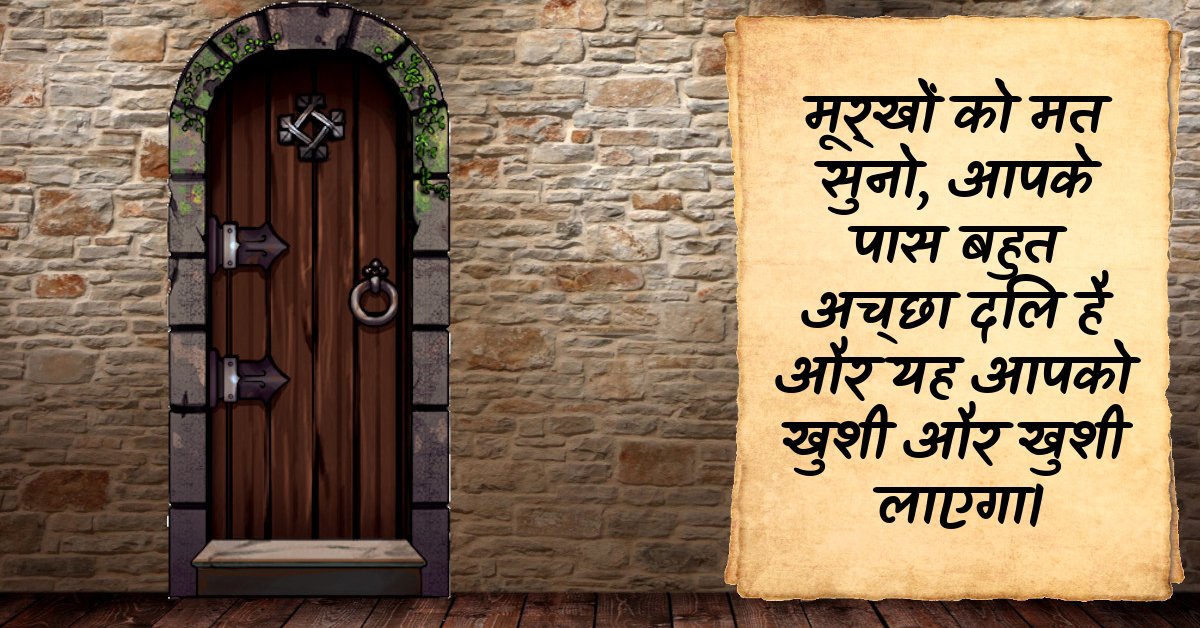 मूर्खों को मत
सुनो, आपके
पास बहुत
अच्छा दलि है
और यह आपको
खुशी और खुशी
लाएगा।